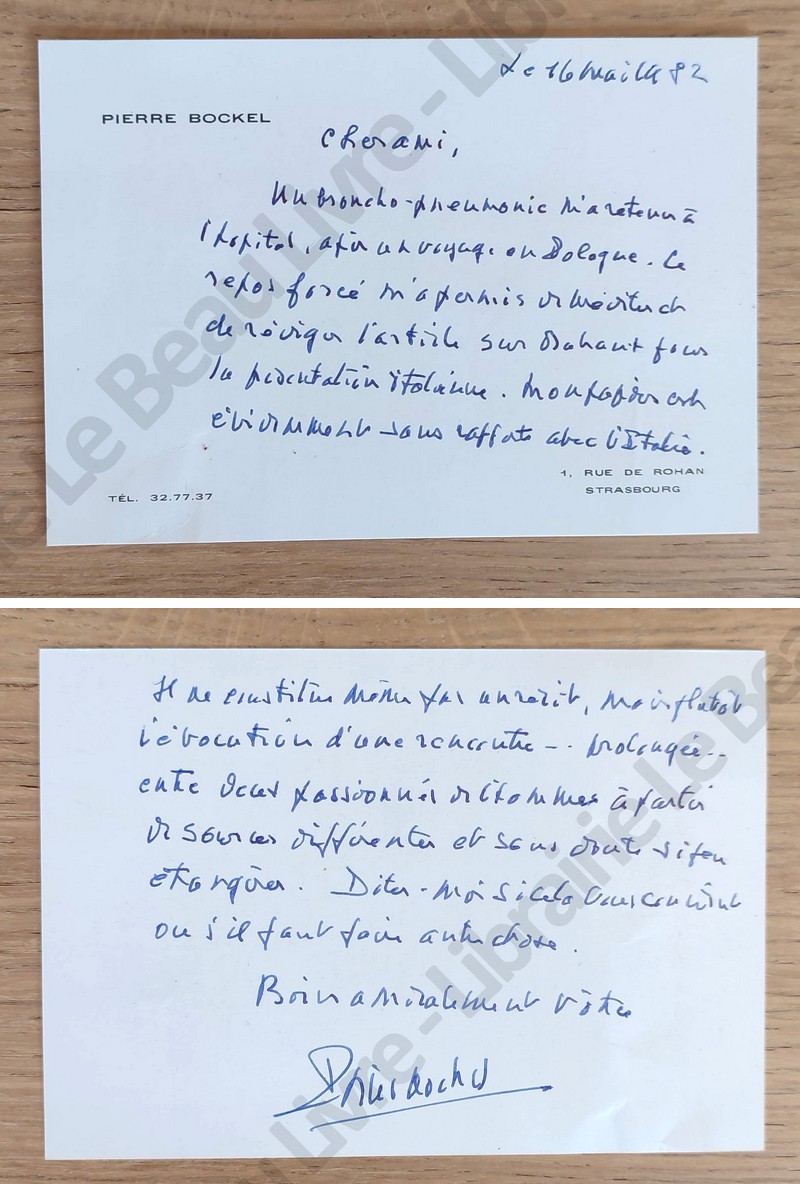 Le 16 juillet 82
PIERRE BOCKEL
Cher ami,
Un broncho-pneumonie m'a retenu à
l'hôpital, après un voyage en Pologne. Ce
repos forcé m'a permis de méditer et
de rédiger l'article sur Malraux pour
la présentation italienne. Mon papier est
évidemment sans rapports avec l'Italie.
1, RUE DE ROHAN
TÉL. 32.77.37
STRASBOURG
Il ne constitue même pas un récit, mais plutôt
l'évocation d'une rencontre -- prolongée --
entre deux passionnés de l'homme à partir
de sources différentes et sans doute si peu
étrangères. Dites-moi si cela vous convient
ou s'il faut faire autre chose.
Bien amicalement vôtre
Pierre Bockel
Librairie Le Beau Livre - Librairie Le Beau Livre